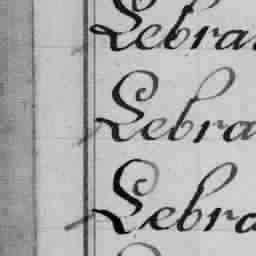 Lebra
Lebra
Lebra